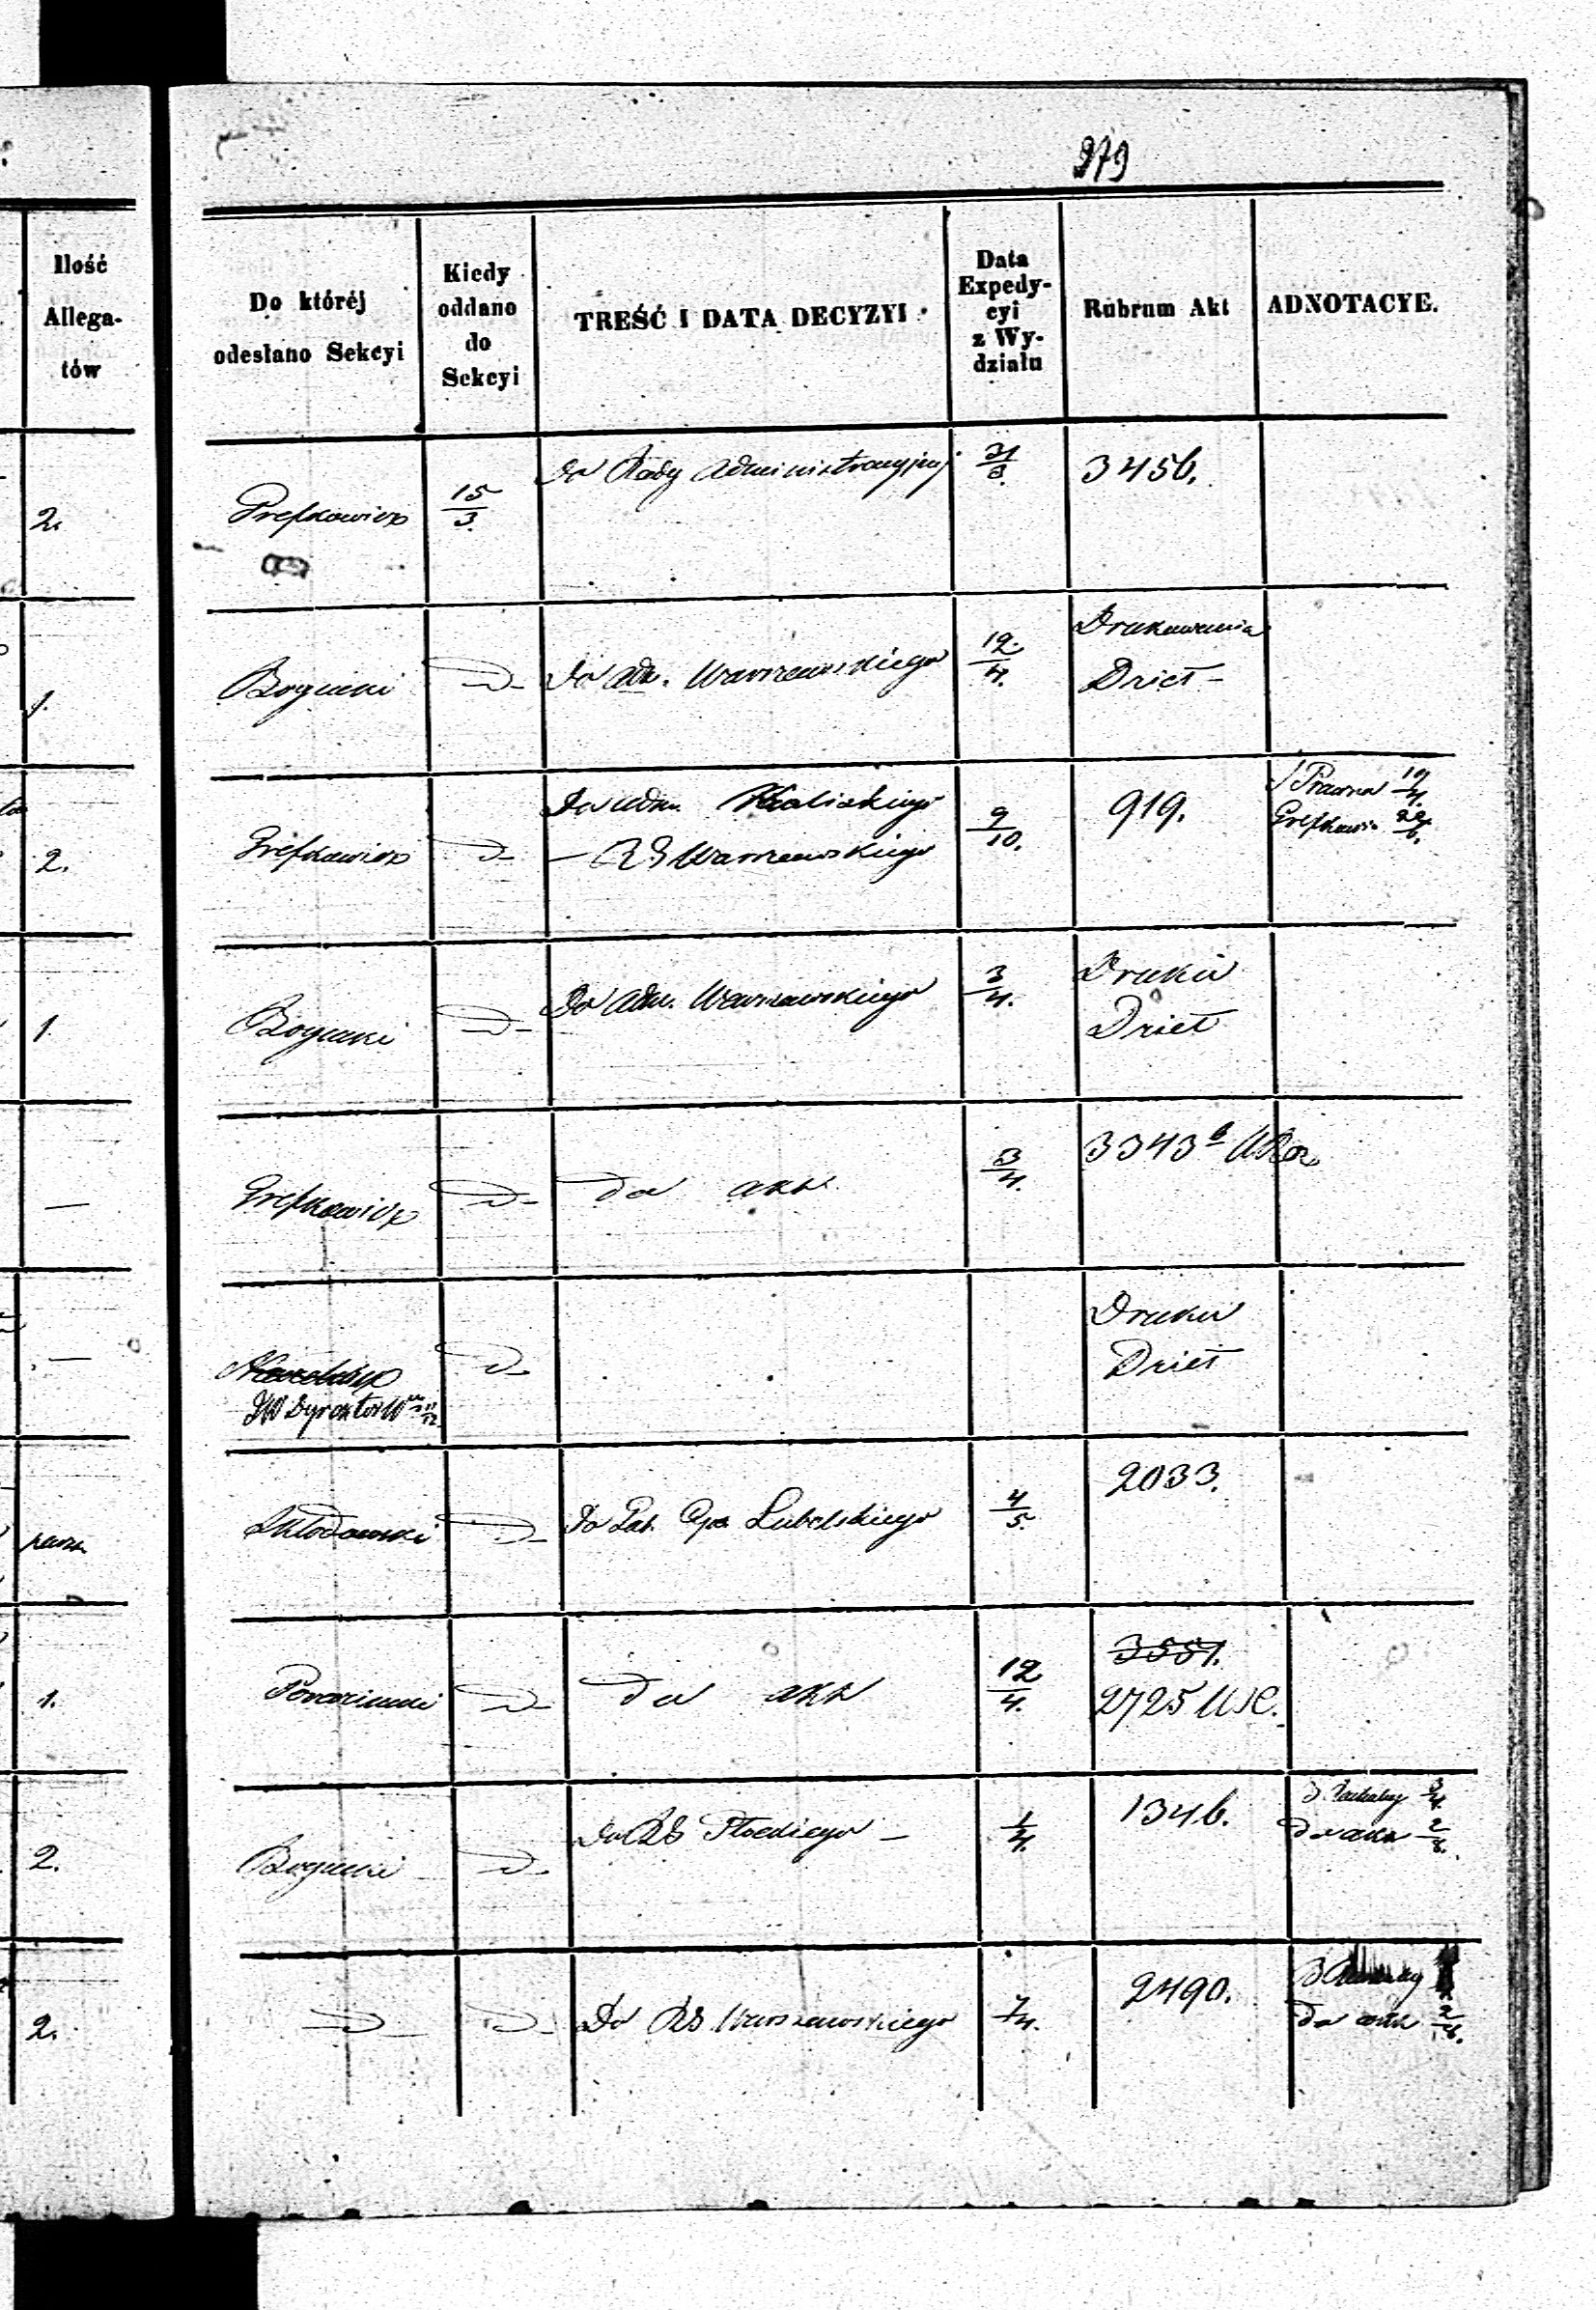 279
Ilość
Allega-
tów
Do któréj
odesłano Sekcyi
Kiedy
oddano
do
Sekcyi
TREŚĆ I DATA DECYZYI
Data
Expedy-
cyi
z Wy-
działu
Rubrum Akt
ADNOTACYE.
2.
15/3.
Do Rady Administracyjnej
31/3.
3456.
1.
Bogucki
D-
Do Adm. Warszawskiego
12./4.
Drukowania
Dzieł -
2.
Grefkowicz
D-
Do Adm. Kaliskiego
— RG Warszawskiego
9/10.
919.
Prawna
Grefkowic
1.
Bogucki
D-
Do Adm. Warszawskiego
3/4.
Druku
Dzieł
—
Grefkowicz
D-
do akt
3/4.
3343
—
JW Dyrektor
D-
Druku
Dzieł
Skłodowski
D-
Do Lubelskiego
4/5.
2033.
1.
D-
do akt
12/4.
3551.
2725
2.
Bogucki
D-
Do RG Płockiego —
1/4.
1346.
do akt
2.
D-
D-
Do RG Warszawskiego
7/4.
2490.
do akt